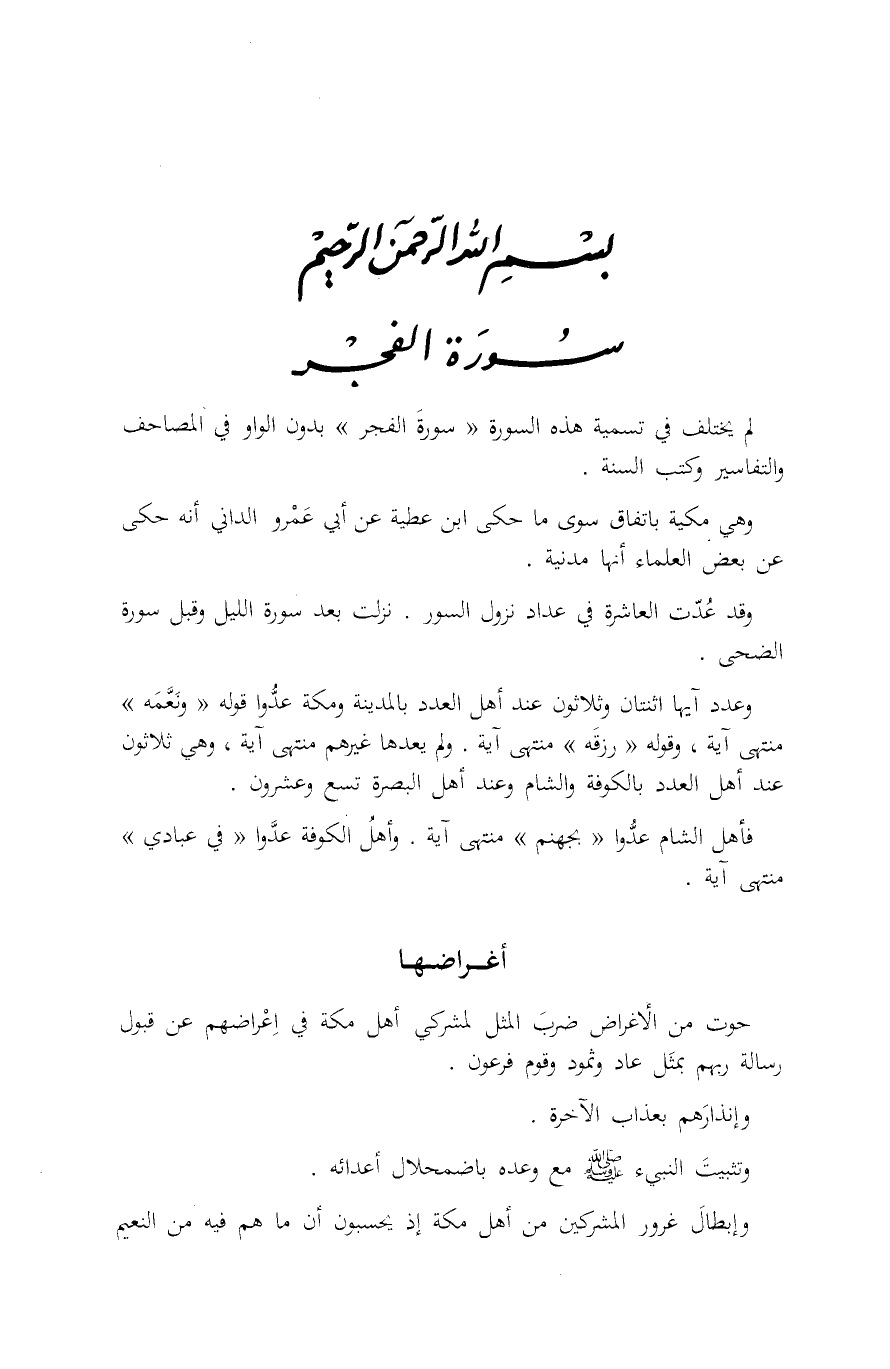 بِسْمِ اللهِ الرَّحْمَنِ الرَّحِيمِ
سُورَة الفَجْر
لم يختلف في تسمية هذه السورة « سورةَ الفجر » بدون الواو في المصاحف
والتفاسير وكتب السنة .
وهي مكية باتفاق سوى ما حكى ابن عطية عن أبي عَمْرو الداني أنه حكى
عن بعض العلماء أنها مدنية .
وقد عُدّت العاشرة في عداد نزول السور . نزلت بعد سورة الليل وقبل سورة
الضحى .
وعدد آيها اثنتان وثلاثون عند أهل العدد بالمدينة ومكة عدُّوا قوله « ونَعَّمَه »
منتهى آية ، وقوله « رزقَه » منتهى آية . ولم يعدها غيرهم منتهى آية ، وهي ثلاثون
عند أهل العدد بالكوفة والشام وعند أهل البصرة تسع وعشرون .
فأهل الشام عدُّوا « بجهنم » منتهى آية . وأهلُ الكوفة عدَّوا « في عبادي »
منتهى آية .
أغـراضـهـا
حوت من الْاغراض ضربَ المثل لمشركي أهل مكة في اِعْراضهم عن قبول
رسالة ربهم بمثَل عاد وثمود وقوم فرعون .
وإنذارَهم بعذاب الآخرة .
وتثبيتَ النبيء ﷺ مع وعده باضمحلال أعدائه .
وإبطالَ غرور المشركين من أهل مكة إذ يحسبون أن ما هم فيه من النعيم